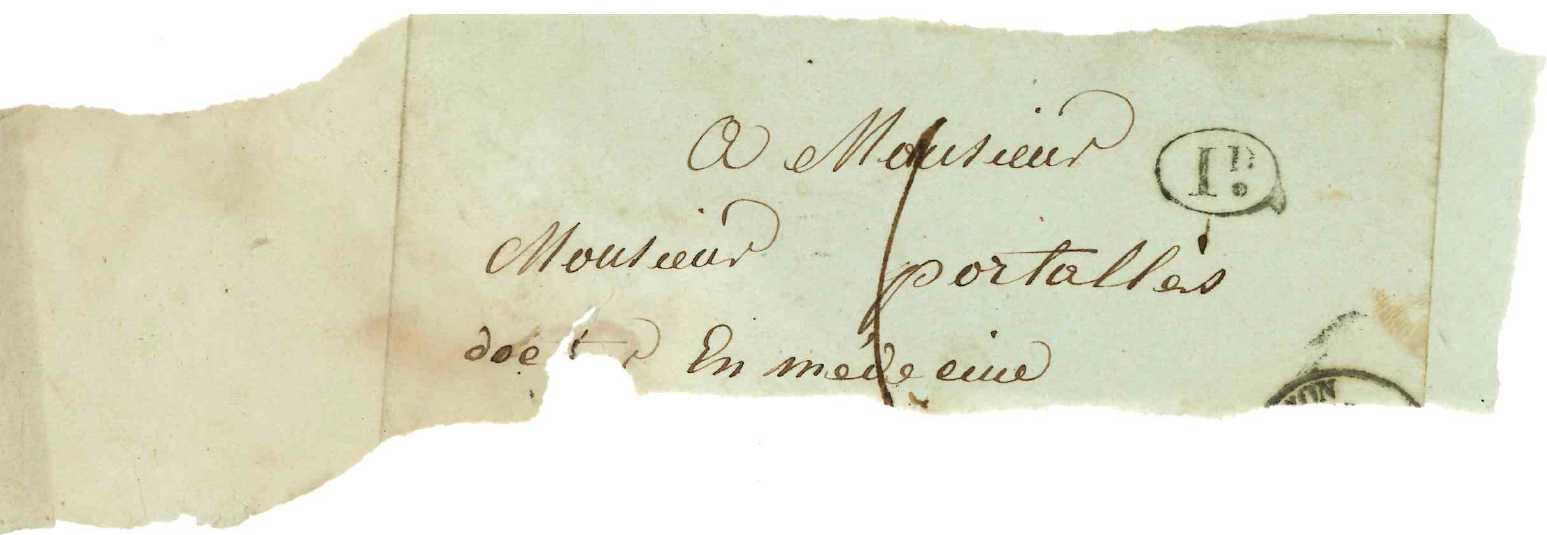 A Monsieur
1D.
Monsieur portallès
doct r En médecine
NON